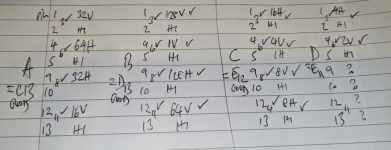 pin 1 3✓ 32V 1 3✓ 128V ✓ 1 3✓ 16H ✓ 1 3✓ 4H
2 H1 2 H1 2 H1 2 H1
4 6✓ 64H 4 6✓ 1V ✓ 4 6✓ 4V ✓ 4 6✓ 2V ✓
A 5 H1 B 5 H1 C 5 1H D 5 H1
9 8✓ 32H 9 8✓ 128H ✓ 9 8✓ 8V ✓ 9 ?
10 10 H1 10 H1 10 ?
12 11✓ 16V 12 11✓ 64V ✓ 12 ✓ 8H ✓ 12 11 ?
13 H1 13 H1 13 H1 13 ?